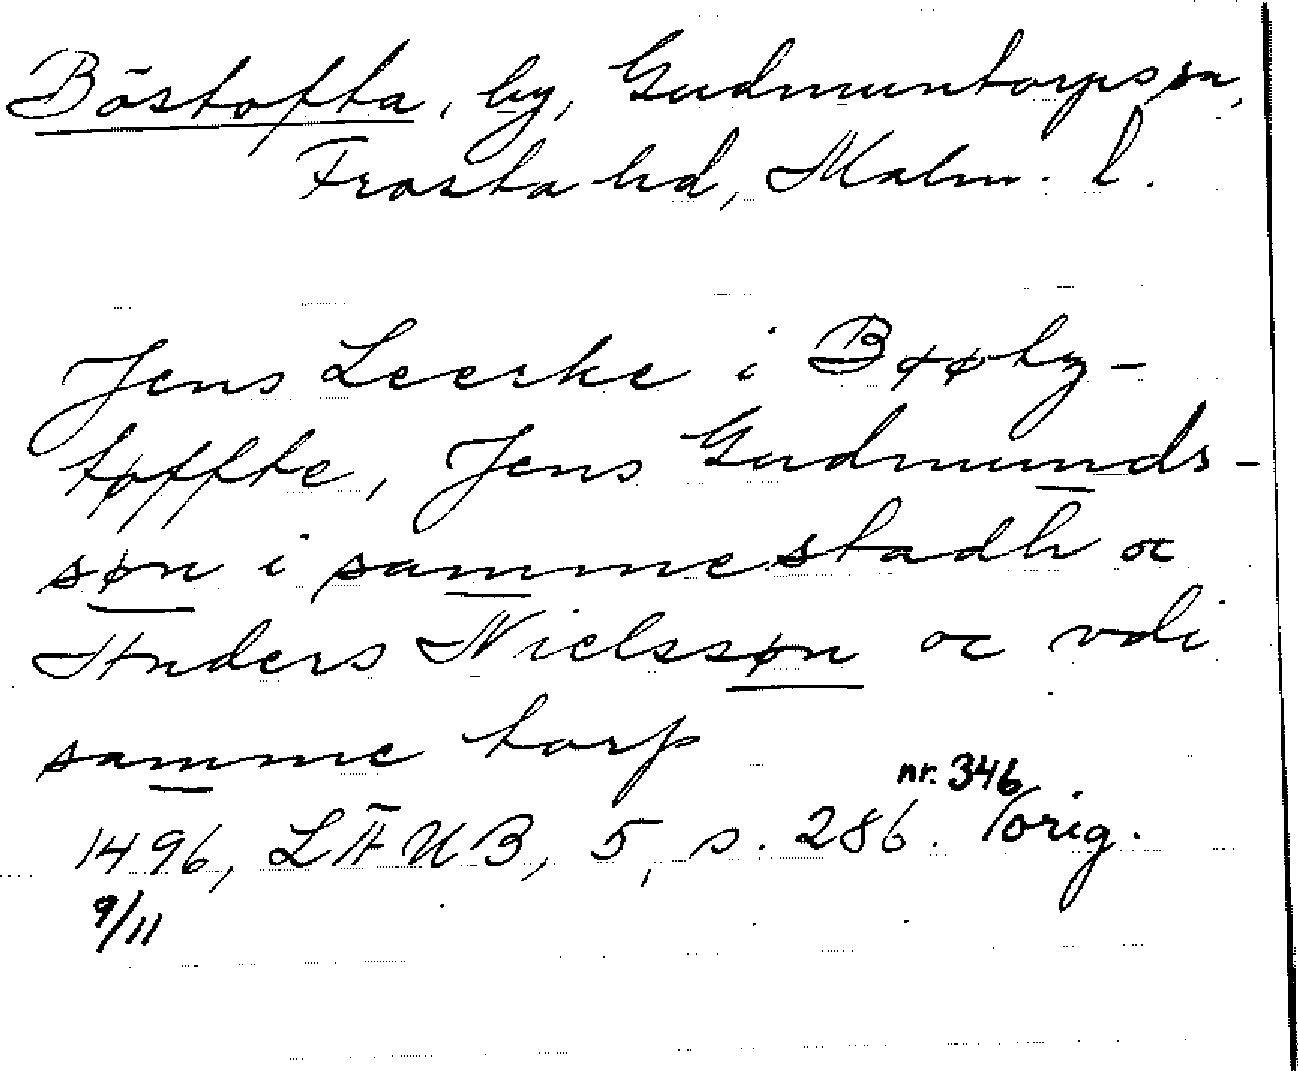 Böstofta, by, Gudmuntorps sn,
Frosta hd, Malm. l.
Jens Leerke i Bøøhz-
tøffte, Jens Gudmunds-
søn i sammestadh oc
Anders Nielssøn oc vdi
samme torp
nr. 346
1496, LÄUB, 5, s. 286. /orig.
9/11